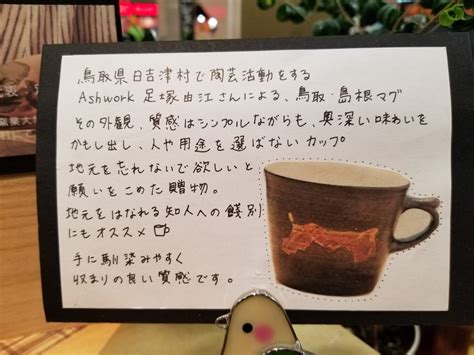 鳥取県日吉津村で陶芸活動をする
Ashwork 足塚由江さんによる、鳥取・島根マグ
その外観、質感はシンプルながらも、奥深い味わいを
かもし出し、人や用途を選ばないカップ
地元を忘れないで欲しいと
願いをこめた贈物。
地元をはなれる知人への餞別
にもオススメ
手に馴染みやすく
収まりの良い質感です。